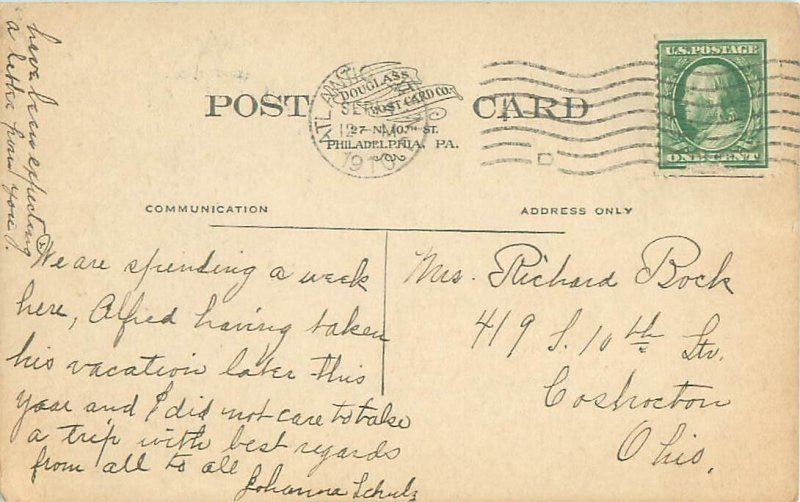 have been expecting
a letter from you.
POST CARD
DOUGLASS
POST CARD CO.
27 N. 10TH ST.
PHILADELPHIA, PA.
ATLANTIC
SEP
12 M
1910
U.S. POSTAGE
ONE CENT
COMMUNICATION
ADDRESS ONLY
We are spending a week
here, Alfred having taken
his vacation later this
year and I did not care to take
a trip with best regards
from all to all
Johanna Schulz
Mrs. Richard Bock
419 S. 10th St.
Coshocton
Ohio.